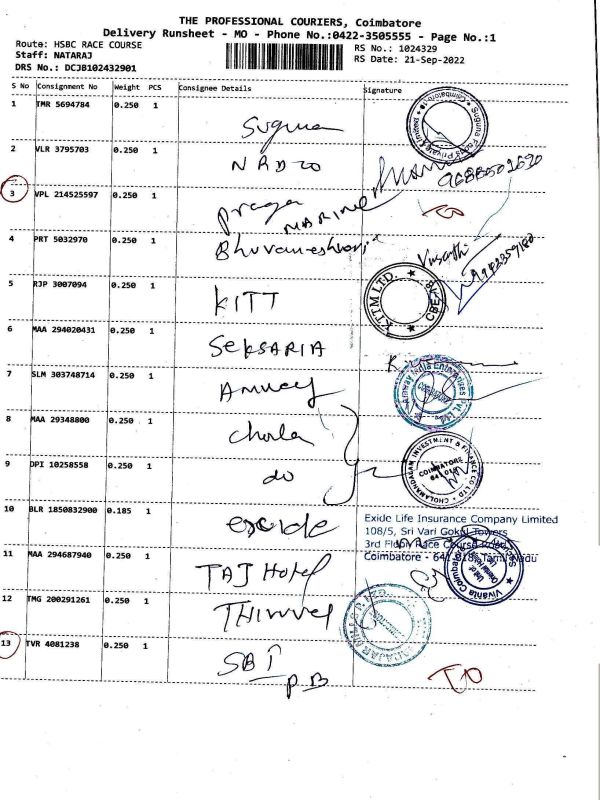 THE PROFESSIONAL COURIERS, Coimbatore
Delivery Runsheet - MO - Phone No.:0422-3505555 - Page No.:1
Route: HSBC RACE COURSE
RS No.: 1024329
Staff: NATARAJ
RS Date: 21-Sep-2022
DRS No.: DCJB102432901
S No Consignment No Weight PCS Consignee Details Signature
1 TMR 5694784 0.250 1
Suguna
2 VLR 3795703 0.250 1
3 VPL 214525597 0.250 1
MARINE
4 PRT 5032970 0.250 1
Bhuvaneshwari
5 RJP 3007094 0.250 1
KITT
K T T M LTD. CBE-18
6 MAA 294020431 0.250 1
SekSARIA
7 SLM 303748714 0.250 1
Amway
Amway India Enterprises Pvt. Ltd.
8 MAA 29348800 0.250 1
Chola
CHOLAMANDALAM INVESTMENT & FINANCE CO LTD
COIMBATORE
9 DPI 10258558 0.250 1
do
10 BLR 1850832900 0.185 1
exide
Exide Life Insurance Company Limited
108/5, Sri Vari Gokul Towers
3rd Floor, Race Course Road
Coimbatore - 641 018, Tamil Nadu
11 MAA 294687940 0.250 1
TAJ Hotel
Vivanta Coimbatore
12 TMG 200291261 0.250 1
13 TVR 4081238 0.250 1
SBI
PB